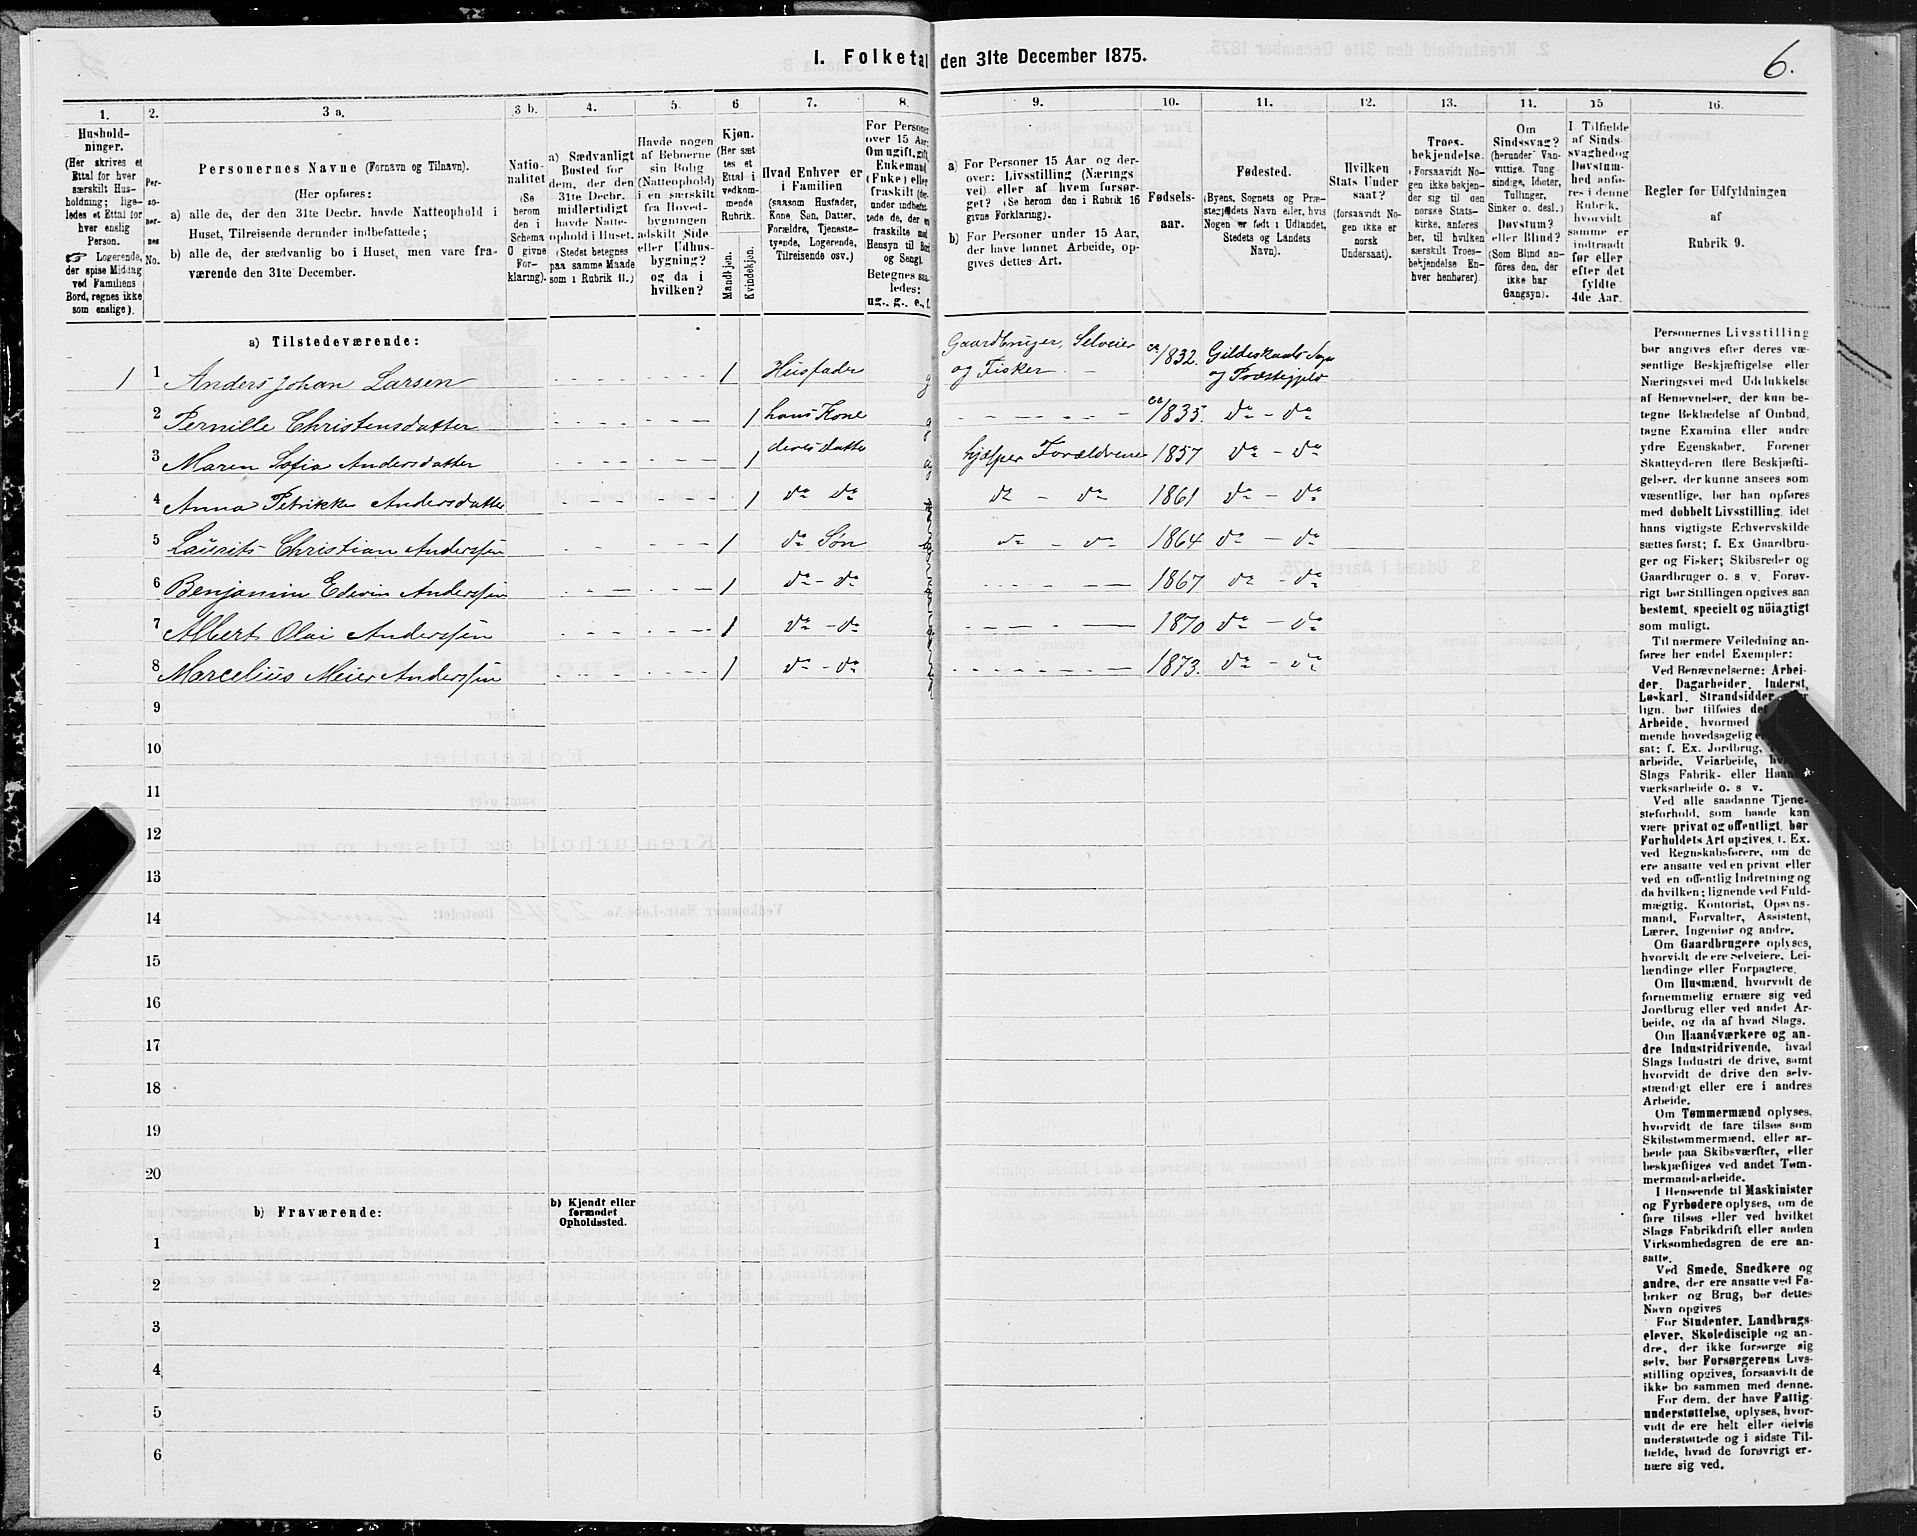 I. Folketal den 31te December 1875.
6.
1.
Hushold-
ninger.
(Her skrives et
Ettal for hver
særskilt Hus-
holdning; lige-
ledes et Ettal for
hver enslig
Person.
Logerende,
der spise Middag
ved Familiens
Bord, regnes ikke
som enslige).
2.
Per-
so-
ner-
nes
No.
3 a.
Personernes Navne (Fornavn og Tilnavn).
(Her opføres:
a) alle de, der den 31te Decbr. havde Natteophold i
Huset, Tilreisende derunder indbefattede;
b) alle de, der sædvanlig bo i Huset, men vare fra-
værende den 31te December.
3 b.
Natio-
nalitet
(Se
herom
den i
Schema
O givne
For-
klaring).
4.
a) Sædvanligt
Bosted for
dem, der den
31te Decbr.
midlertidigt
havde Natte-
ophold i Huset.
(Stedet betegnes
paa samme Maade
som i Rubrik 11.)
5.
Havde nogen
af Beboerne
sin Bolig
(Natteophold)
i en særskilt
fra Hoved-
bygningen
adskilt Side-
eller Udhus-
bygning?
og da i
hvilken?
6
Kjøn.
(Her sæt
tes et
Ettal i
vedkom-
mende
Rubrik.
Mandkjøn.
Kvindekjøn.
7.
Hvad Enhver er
i Familien
(saasom Husfader,
Kone, Søn, Datter,
Forældre, Tjeneste-
tyende, Logerende,
Tilreisende osv.)
8.
For Personer
over 15 Aar:
Om ugift, gift,
Enkemand
(Enke) eller
fraskilt
Betegnes saa-
ledes:
ug., g., e., f.
9.
a) For Personer 15 Aar og der-
over: Livsstilling (Nærings
vei) eller af hvem forsør-
get? (Se herom den i Rubrik 16
givne Forklaring).
b) For Personer under 15 Aar,
der have lønnet Arbeide, op-
gives dettes Art.
10.
Fødsels-
aar.
11.
Fødested.
(Byens, Sognets og Præ-
stegjeldets Navn eller, hvis
Nogen er født i Udlandet,
Stedets og Landets
Navn).
12.
Hvilken
Stats Under
saat?
(forsaavidt No-
gen ikke er
norsk
Undersaat).
13.
Troes-
bekjendelse.
(Forsaavidt No-
gen ikke bekjen-
der sig til den
norske Stats-
kirke, anføres
her, til hvilken
særskilt Troes-
bekjendelse En-
hver henhører)
14.
Om
Sindssvag?
(herunder Van-
vittige. Tung
sindige, Idioter,
Tullinger,
Sinker o. desl.)
Døvstum?
eller Blind?
(Som Blind an-
føres den, der
ikke har
Gangsyn).
15
I Tilfælde
af Sinds-
svaghed og
Døvstum-
hed anfø-
res i denne
Rubrik,
hvorvidt
samme er
indtraadt
før eller
efter det
fyldte
4de Aar.
16.
Regler for Udfyldningen
af
Rubrik 9.
a) Tilstedeværende:
1 1 Anders Johan Larsen 1 Husfader g Gaardbruger, Selveier og Fisker ca 1832. Gildeskaals Sogn og Præstegjeld
2 Pernille Christensdatter 1 hans Kone g ca 1835. do - do
3 Maren Sofia Andersdatter 1 deres Datter ug hjelper Forældrene 1857 do - do
4 Anna Petrikke Andersdatter 1 do do do - do 1861 do - do
5 Laurits Christian Anderssen 1 do Søn do - do 1864 do - do
6 Benjamin Edevin Anderssen 1 do - do 1867 do - do
7 Albert Olai Anderssen 1 do - do 1870 do - do
8 Marcelius Meier Anderssen 1 do - do 1873. do - do
9
10
11
12
13
14
15
16
17
18
19
20
b) Fraværende:
b) Kjendt eller
formodet
Opholdssted.
1
2
3
4
5
6
Personernes Livsstilling
bør angives efter deres væ-
sentlige Beskjæftigelse eller
Næringsvei med Udelukkelse
af Benævnelser, der kun be-
tegne Beklædelse af Ombud,
tagne Examina eller andre
ydre Egenskaber. Forener
Skatteyderen flere Beskjæfti-
gelser, der kunne ansees som
væsentlige, bør han opføres
med dobbelt Livsstilling, idet
hans vigtigste Erhvervskilde
sættes først; f. Ex Gaardbru-
ger og Fisker; Skibsreder og
Gaardbruger o. s v. Forøv-
rigt bør Stillingen opgives saa
bestemt, specielt og nöiagtigt
som muligt.
Til nærmere Veiledning an-
føres her endel Exempler:
Ved Benævnelserne: Arbei-
der, Dagarbeider, Inderst,
Løskarl, Strandsidder
lign. bør tilføies det
Arbeide, hvormed
mende hovedsagelig
sat; f. Ex. Jordbrug,
arbeide, Veiarbeide,
Slags Fabrik- eller Haand-
værksarbeide o. s v.
Ved alle saadanne Tjene-
steforhold, som baade kan
være privat og offentligt, bør
Forholdets Art opgives, t. Ex.
ved Regnskabsførere, om de
ere ansatte ved en privat eller
ved en offentlig Indretning og
da hvilken; lignende ved Fuld-
mægtig, Kontorist, Opsyns-
mand, Forvalter, Assistent,
Lærer, Ingeniør og andre.
Om Gaardbrugere oplyses,
hvorvidt de ere Selveiere, Lei-
lændinge eller Forpagtere.
Om Husmænd, hvorvidt de
fornemmelig ernære sig ved
Jordbrug eller ved andet Ar-
beide, og da af hvad Slags.
Om Haandværkere og an-
dre Industridrivende, hvad
Slags Industri de drive, samt
hvorvidt de drive den selv-
stændigt eller ere i andres
Arbeide.
Om Tømmermænd oplyses,
hvorvidt de fare tilsøs som
Skibstømmermænd, eller ar-
beide paa Skibsværfter, eller
beskjæftiges ved andet Tøm-
mermandsarbeide.
I Henseende til Maskinister
og Fyrbødere oplyses, om de
fare tilsøs eller ved hvilket
Slags Fabrikdrift eller anden
Virksomhedsgren de ere an-
satte.
Ved Smede, Snedkere og
andre, der ere ansatte ved Fa-
briker og Brug, bør dettes
Navn opgives
For Studenter, Landbrugs-
elever, Skoledisciple og an-
dre, der ikke forsørge sig
selv, bør Forsørgerens Livs-
stilling opgives, forsaavidt de
ikke bo sammen med denne.
For dem, der have Fattig-
understøttelse, oplyses, hvor-
vidt de ere helt eller delvis
understøttede og i sidste Til-
fælde, hvad de forøvrigt er-
nære sig ved.